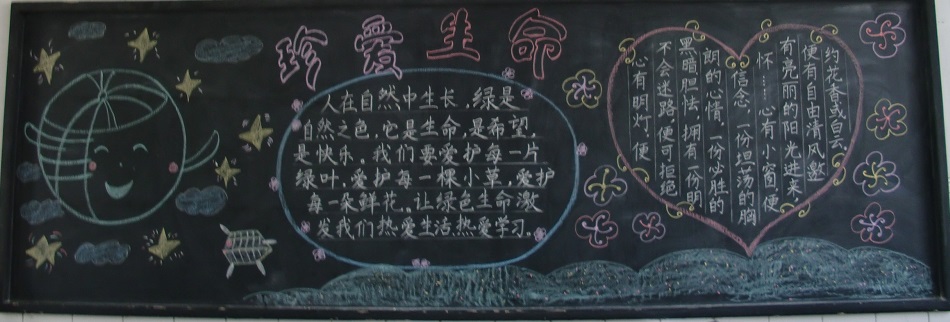 珍爱生命
人在自然中生长,绿是
自然之色,它是生命,是希望,
是快乐。我们要爱护每一片
绿叶、爱护每一棵小草,爱护
每一朵鲜花。让绿色生命激
发我们热爱生活热爱学习。
心有明灯,便
不会迷路,便可拒绝
黑暗胆怯,拥有一份明
朗的心情,一份必胜的
信念,一份坦荡的胸
怀……心有小窗,便
有亮丽的阳光进来
便有自由清风邀
约花香或白云,